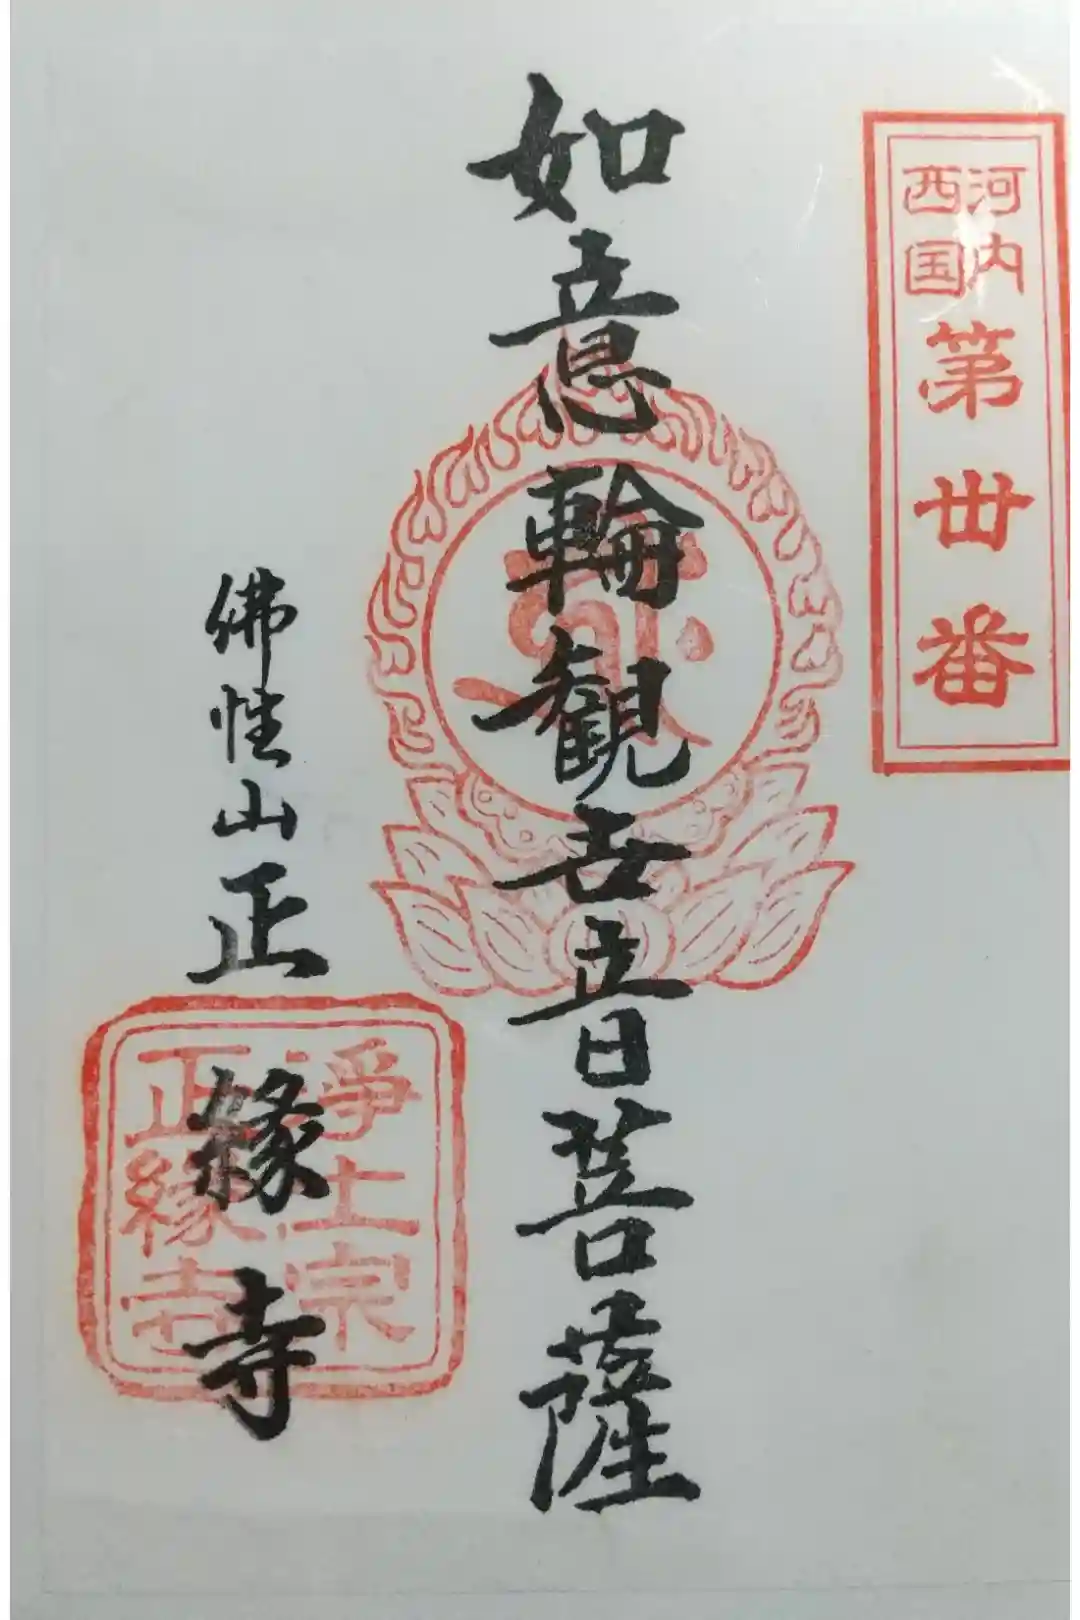 河内
西国
第卅番
如意輪観世音菩薩
佛性山正縁寺
淨土宗
正縁寺